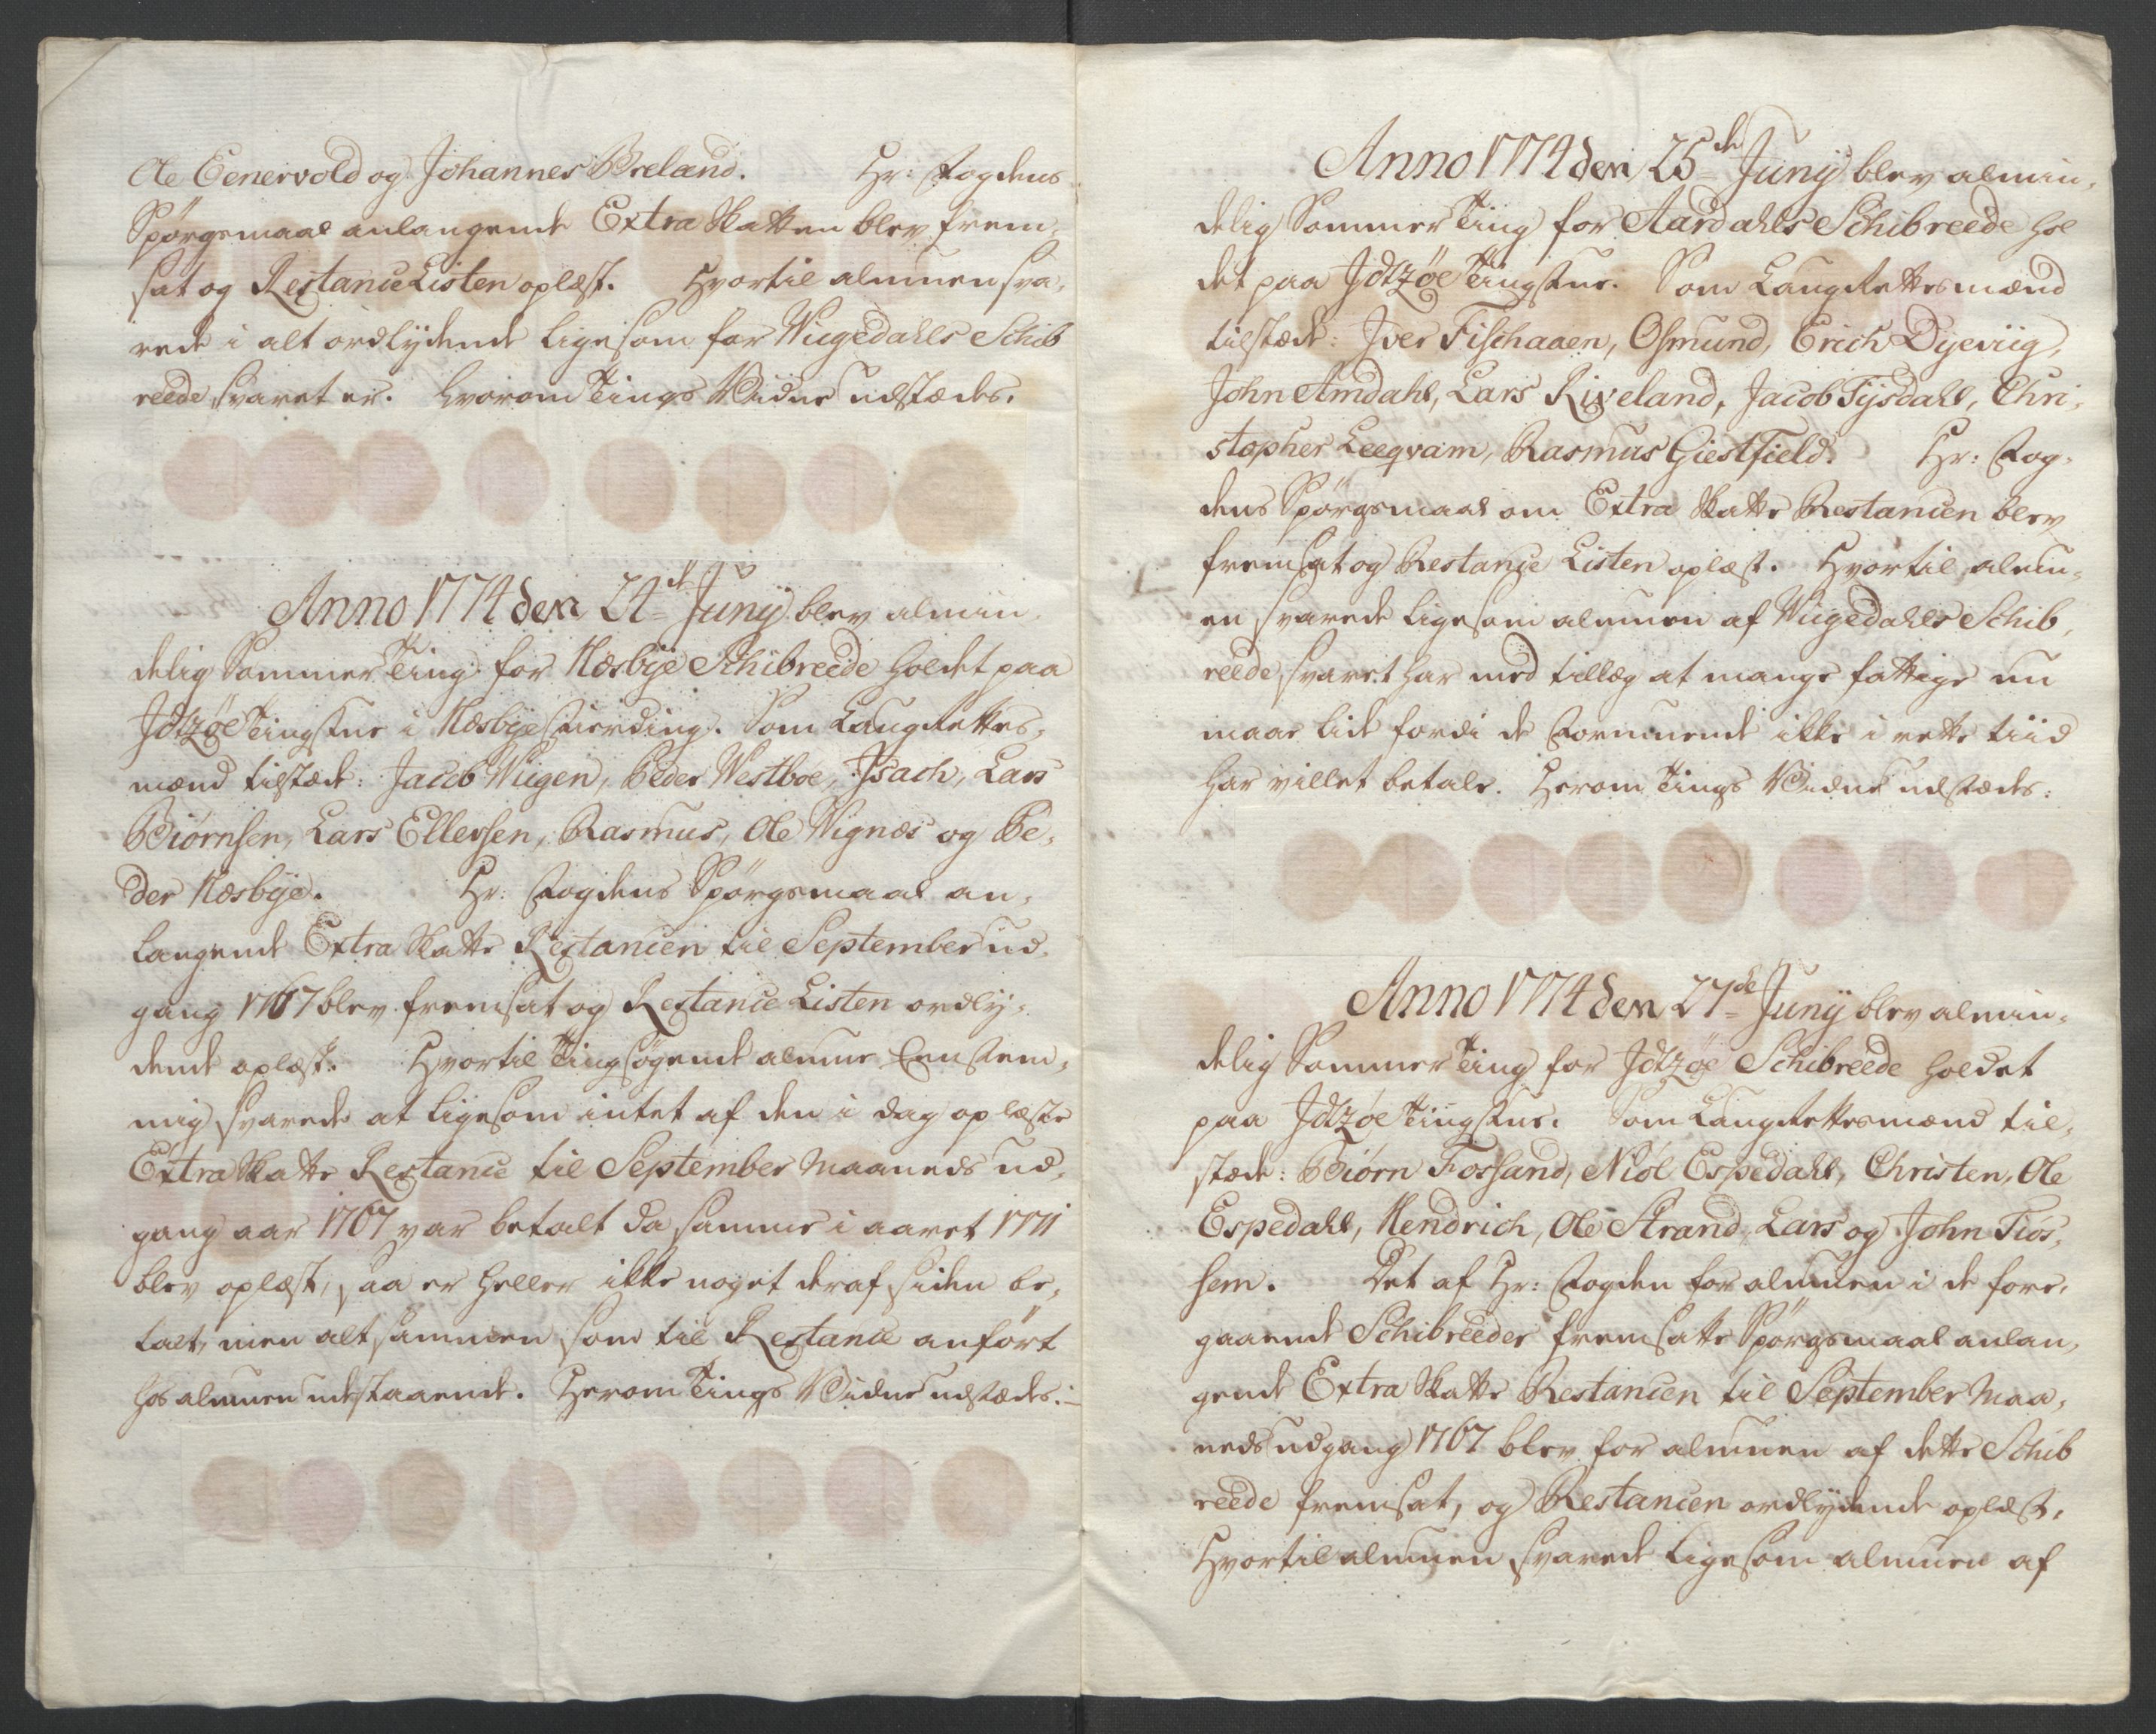 Ole Eenervold og Johannes Breland. Hr: Fogdens
Spörgsmaal anlangende Extra Skatten blev frem,
sat og Restance Listen oplæst. Hvortil almuen sva,
rede i alt ordlydende ligesom for Wiigedahls Schib
reede svaret er. Hvorom Tings Vidne udstædes.
Anno 1774 den 24de Junÿ blev almin,
delig Sommer Ting for Næsbÿe Schibreede holdet paa
Jdtzöe Tingstue i Næsbÿe Fierding. Som Laugrettes,
mænd tilstæde: Jacob Wiigen, Peder Westboe, Jsach, Lars
Biörnsen, Lars Ellevsen, Rasmus, Ole Wignæs og Pe,
der Næsbÿe. Hr: Fogdens Spörgsmaal an,
langende Extra Skatte Restancen til September ud,
gang 1767 blev fremsat og Restance Listen ordlÿ,
dende oplæst. Hvortil Tingsögende almue Eenstem,
mig svarede at ligesom intet af den i dag oplæste
Extra Skatte Restance til September Maaneds ud,
gang aar 1767 var betalt da samme i aaret 1771
blev oplæst, saa er heller ikke noget deraf siden be,
talt, men alt sammen som til Restance anfört
hos almuen udestaaende. Herom Tings Vidne udstædes.
Anno 1774 den 25de Junÿ blev almin,
delig Sommer Ting for Aardahls Schibreede hol
det paa Jdtzöe Tingstue. Som Laugrettesmænd
tilstæde: Jver Fischaaen, Osmund, Erich Dÿeviig,
John Amdahl, Lars Riveland, Jacob Tÿsdahl, Chri,
stopher Leeqvam, Rasmus Giestfield. Hr: Fog,
dens Spörgsmaal om Extra Skatte Restancen blev
fremsat og Restance Listen oplæst. Hvortil almu,
en svarede ligesom almuen af Wiigedahls Schib,
reede svaret har med tillæg at mange fattige nu
maae lide fordi de Formuende ikke i rette tiid
har villet betale. Herom Tings Vidne udstædes:
Anno 1774 den 27de Junÿ blev almin,
delig Sommer Ting for Jdtzöe Schibreede holdet
paa Jdtzöe Tingstue. Som Laugrettesmænd til,
stæde: Biörn Fossand, Niöl Espedahl, Christen, Ole
Espedahl, Hendrich, Ole Strand, Lars og John Tiös,
sem. Det af Hr: Fogden for almuen i de fore,
gaaende Schibreeder fremsatte Spörgsmaal anlan,
gende Extra Skatte Restancen til September Maa,
neds udgang 1767 blev for almuen af dette Schib
reede fremsat, og Restancen ordlÿdende oplæst,
Hvortil almuen svarede ligesom almuen af